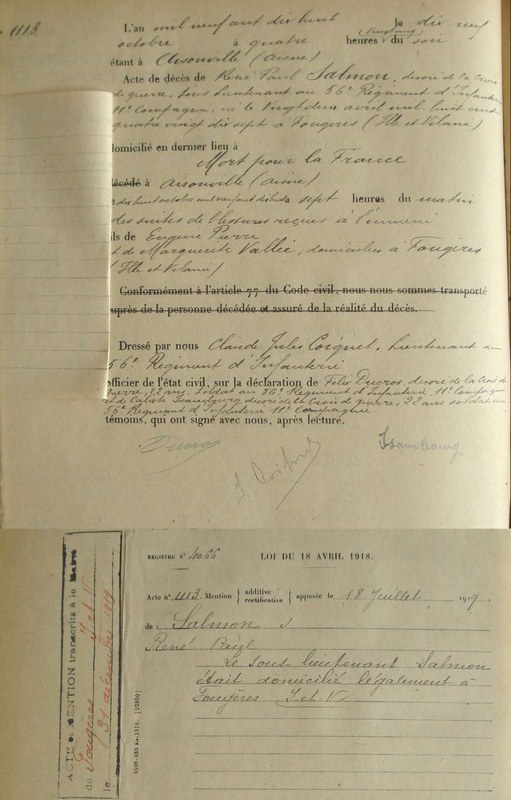 1113.
L'an mil neuf cent dix huit le dix neuf
octobre à quatre heures du soir
étant à Aisonville (Aisne)
Acte de décès de René Paul Salmon, décoré de la Croix
de guerre, sous lieutenant au 56e Régiment d'Infanterie
11e Compagnie, né le vingt deux avril mil huit cent
quatre vingt dix sept à Fougères (Ille et Vilaine)
domicilié en dernier lieu à
Mort pour la France
décédé à Aisonville (Aisne)
dix huit octobre mil neuf cent dix huit à sept heures du matin
des suites de blessures reçues à l'ennemi
ls de Eugène Pierre
t de Marguerite Vallée, domiciliés à Fougères
(Ille et Vilaine)
Conformément à l'article 77 du Code civil, nous nous sommes transporté
auprès de la personne décédée et assuré de la réalité du décès.
Dressé par nous Claude Jules Coiquet, lieutenant au
56e Régiment d'Infanterie
officier de l'état civil, sur la déclaration de Félix Ducros, décoré de la Croix de
guerre, 22 ans, soldat au 56e Régiment d'Infanterie, 11e Compagnie
et de Isambourg décoré de la Croix de guerre, 22 ans soldat au
56e Régiment d'Infanterie 11e Compagnie
témoins, qui ont signé avec nous, après lecture.
Ducros
Isambourg
REGISTRE N° 4066 LOI DU 18 AVRIL 1918.
Acte n° 1113 Mention additive rectificative apposée le 18 Juillet 1919.
de Salmon
René Paul
Le sous lieutenant Salmon
était domicilié légalement à
Fougères I et V
ACTE & MENTION transcrits à la Mairie
de Fougères I et V
le 31 décembre 1919